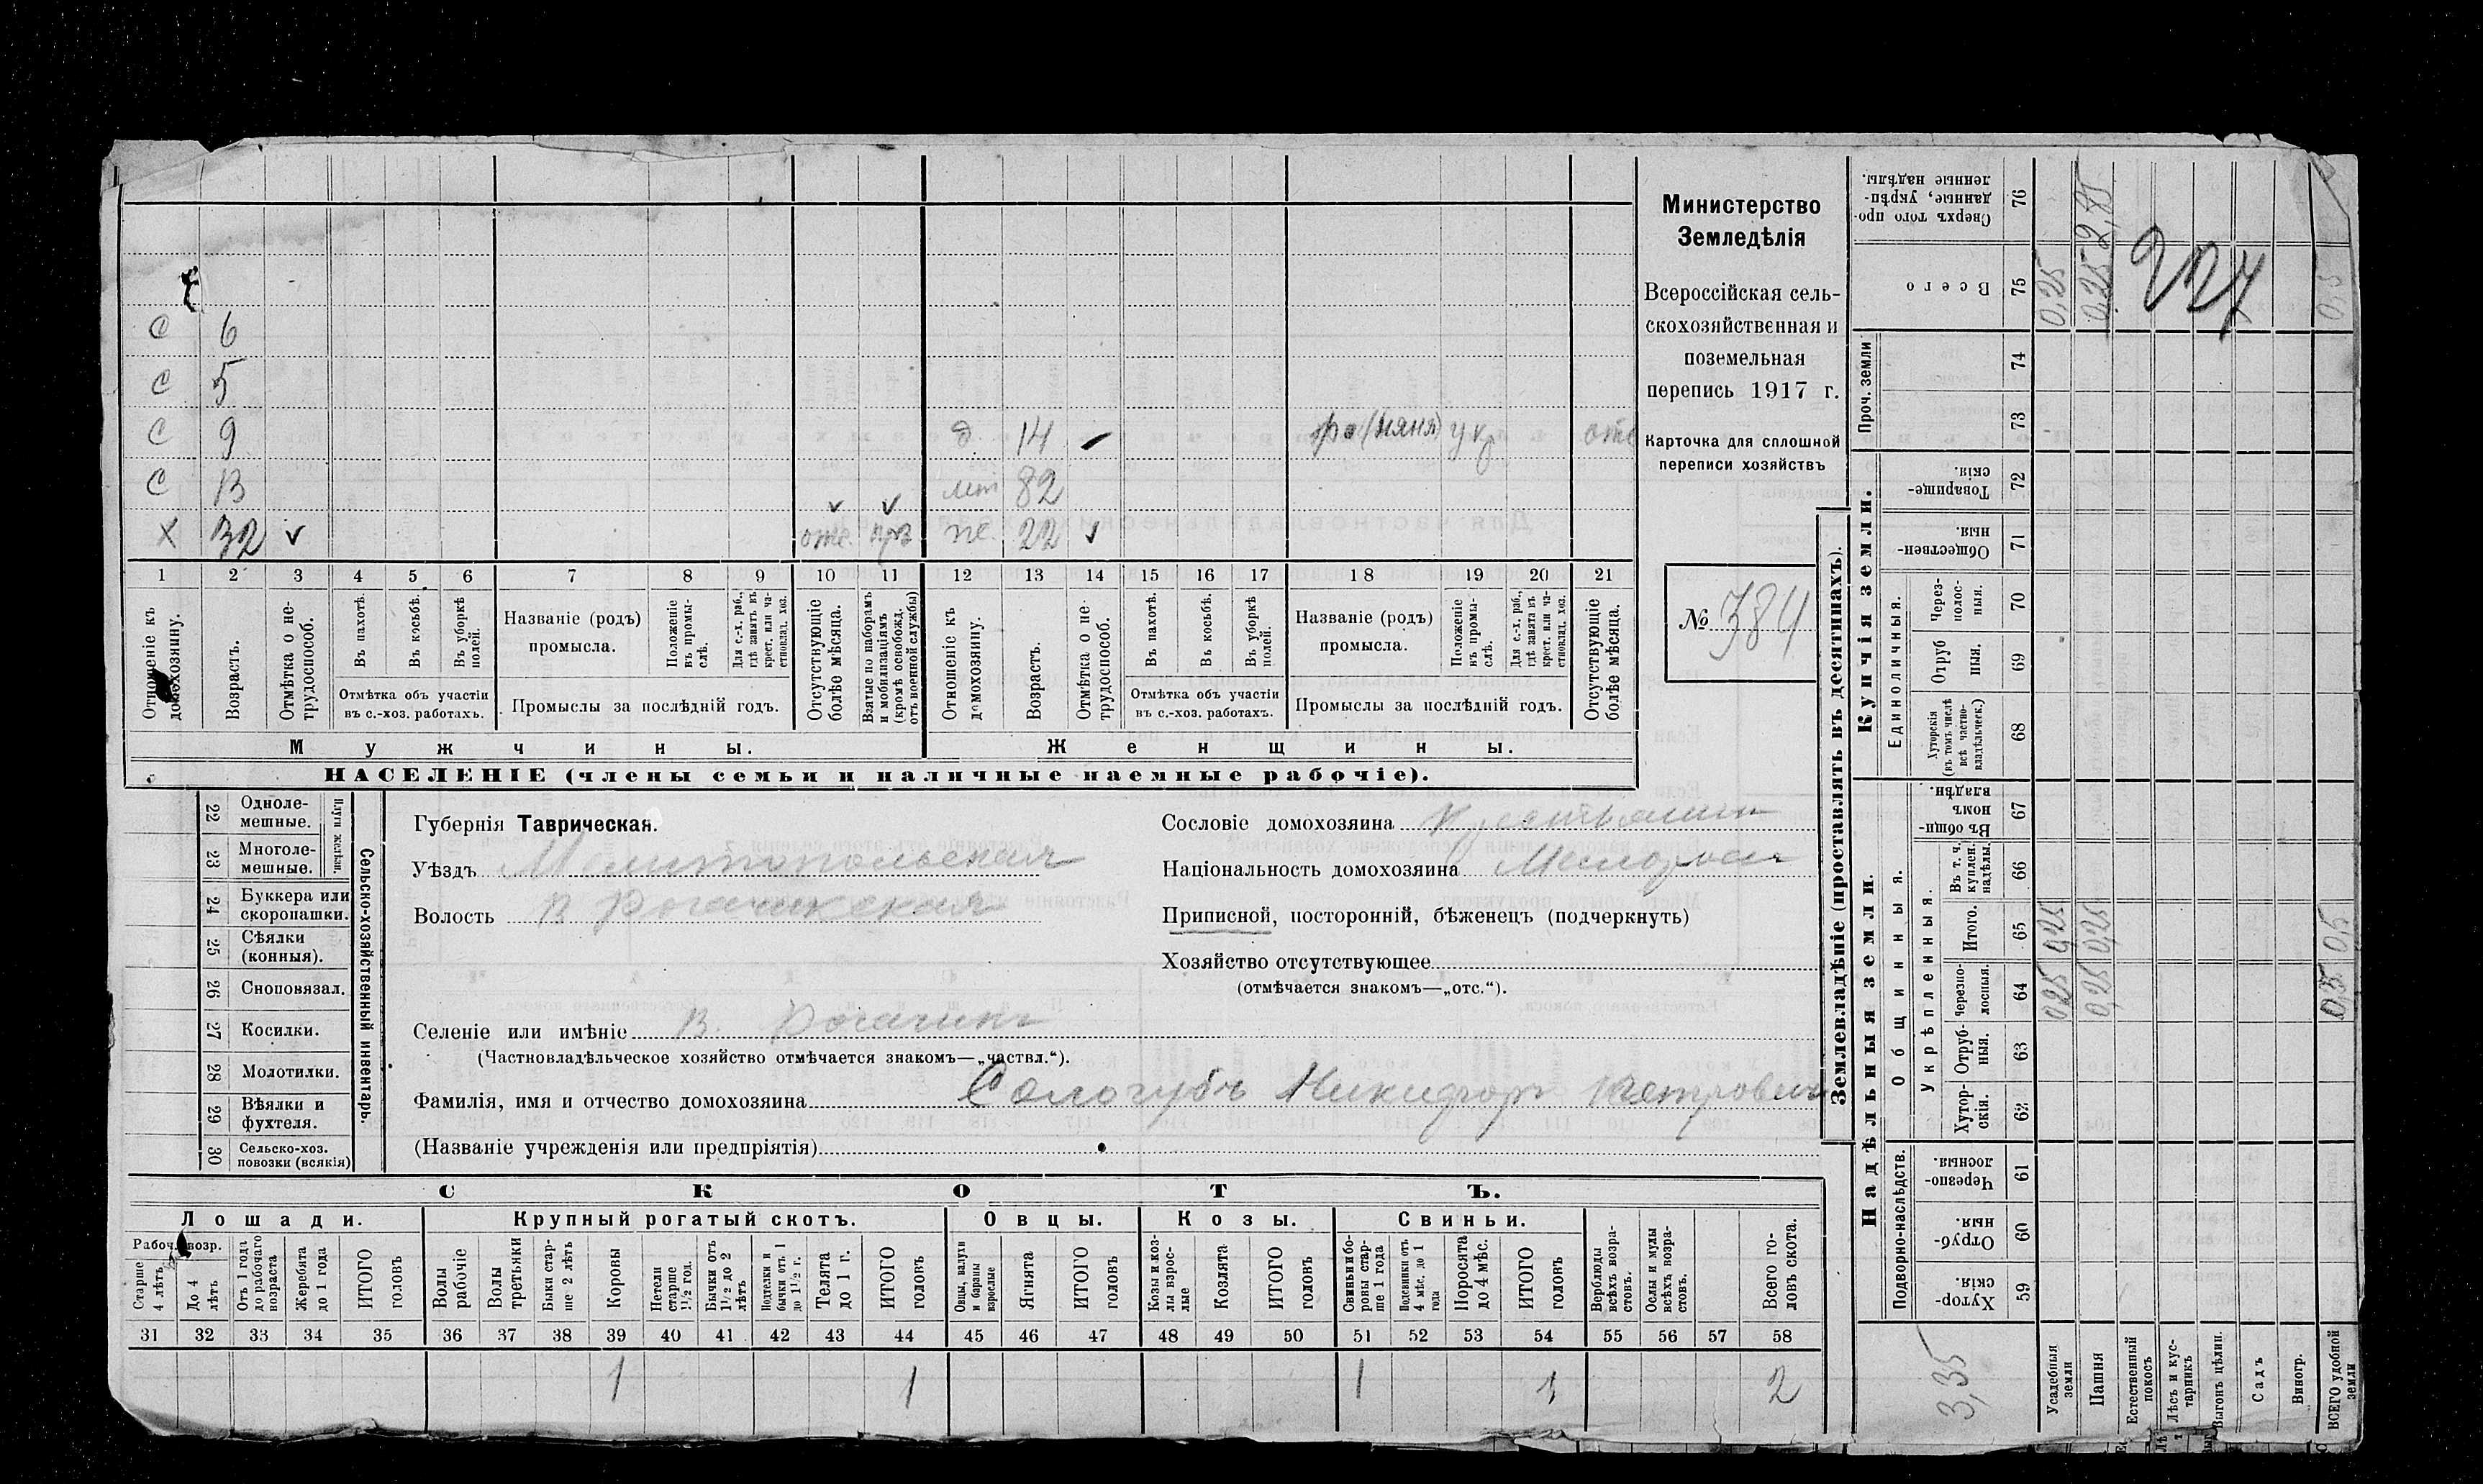 С 6
С 5
С 9 д. 14 – (няня) укр отс
С 13 мат 82
Х 32 ✓ отс. ✓ ✓ ж. 22 ✓
1 2 3 4 5 6 7 8 9 10 11 12 13 14 15 16 17 18 19 20 21
Отношеніе къ домохозяину.
Возрастъ.
Отмѣтка о нетрудоспособ.
Въ пахотѣ.
Въ косьбѣ.
Въ уборкѣ полей.
Отмѣтка объ участіи въ с.-хоз. работахъ.
Названіе (родъ) промысла.
Положеніе въ промыслѣ.
Для с.-х. раб., гдѣ занятъ въ крест. или частновлад. хоз.
Промыслы за послѣдній годъ.
Отсутствующіе болѣе мѣсяца.
Взятые по наборамъ и мобилизаціямъ (кромѣ освобожд. отъ военной службы)
Отношеніе къ домохозяину.
Возрастъ.
Отмѣтка о нетрудоспособ.
Въ пахотѣ.
Въ косьбѣ.
Въ уборкѣ полей.
Отмѣтка объ участіи въ с.-хоз. работахъ.
Названіе (родъ) промысла.
Положеніе въ промыслѣ.
Для с.-х. раб., гдѣ занята въ крест. или частновлад. хоз.
Промыслы за послѣдній годъ.
Отсутствующіе болѣе мѣсяца.
Мужчины.
Женщины.
НАСЕЛЕНІЕ (члены семьи и наличные наемные рабочіе).
Министерство
Земледѣлія
Всероссійская сель-
скохозяйственная и
поземельная
перепись 1917 г.
Карточка для сплошной
переписи хозяйствъ
№ 384
22 Одноле-мешные.
23 Многоле-мешные.
Плуги желѣзн.
24 Буккера или скоропашки.
25 Сѣялки (конныя).
26 Сноповязал.
27 Косилки.
28 Молотилки.
29 Вѣялки и фухтеля.
30 Сельско-хоз. повозки (всякія)
Сельско-хозяйственный инвентарь.
Губернія Таврическая.
Уѣздъ Мелитопольская
Волость В Рогачикская
Сословіе домохозяина Крестьянин
Національность домохозяина Малоросс
Приписной, посторонній, бѣженецъ (подчеркнуть)
Хозяйство отсутствующее
(отмѣчается знакомъ—„отс.“).
Селеніе или имѣніе В. Рогачик
(Частновладѣльческое хозяйство отмѣчается знакомъ—„частвл.“).
Фамилія, имя и отчество домохозяина Сологубъ Никифор Петрович
(Названіе учрежденія или предпріятія)
СКОТЪ.
Лошади. Крупный рогатый скотъ. Овцы. Козы. Свиньи.
Рабоч. возр.
Старше 4 лѣтъ
До 4 лѣтъ
Отъ 1 года до рабочаго возраста
Жеребята до 1 года
ИТОГО головъ
Волы рабочіе
Волы третьяки
Быки старше 2 лѣтъ
Коровы
Нетели старше 1½ год.
Бычки отъ 1½ до 2 лѣтъ
Подтелки и бычки отъ 1 до 1½ г.
Телята до 1 г.
ИТОГО головъ
Овцы, валухи и бараны взрослые
Ягнята
ИТОГО головъ
Козы и козлы взрослые
Козлята
ИТОГО головъ
Свиньи и боровы старше 1 года
Подсвинки отъ 4 мѣс. до 1 года
Поросята до 4 мѣс.
ИТОГО головъ
Верблюды всѣхъ возрастовъ.
Ослы и мулы всѣхъ возрастовъ.
Всего головъ скота.
31 32 33 34 35 36 37 38 39 40 41 42 43 44 45 46 47 48 49 50 51 52 53 54 55 56 57 58
1 1 1 1 2
Землевладѣніе (проставлять въ десятинахъ).
Надѣльныя земли.
Купчія земли.
Проч. земли
Подворно-наслѣдств.
Общинныя.
Укрѣпленныя.
Единоличныя.
Сверхъ того проданные, укрѣпленные надѣлы. 76
Всего 75
74
73
Товарищескія. 72
Общественныя. 71
Черезполосныя. 70
Отрубныя. 69
Хуторскія (въ томъ числѣ всѣ частновладѣльческ.) 68
Въ общинномъ владѣн. 67
Въ т. ч. куплен. надѣлы. 66
Итого. 65
Черезполосныя. 64
Отрубныя. 63
Хуторскія. 62
Черезполосныя. 61
Отрубныя. 60
Хуторскія. 59
0,25 0,25 2,85 227 0,5
0,25 0,25 0,5
0,25 0,25 0,5
3,35
Усадебныя земли
Пашня
Естественный покосъ
Лѣсъ и кустарникъ
Выгонъ цѣлин.
Садъ
Виногр.
ВСЕГО удобной земли